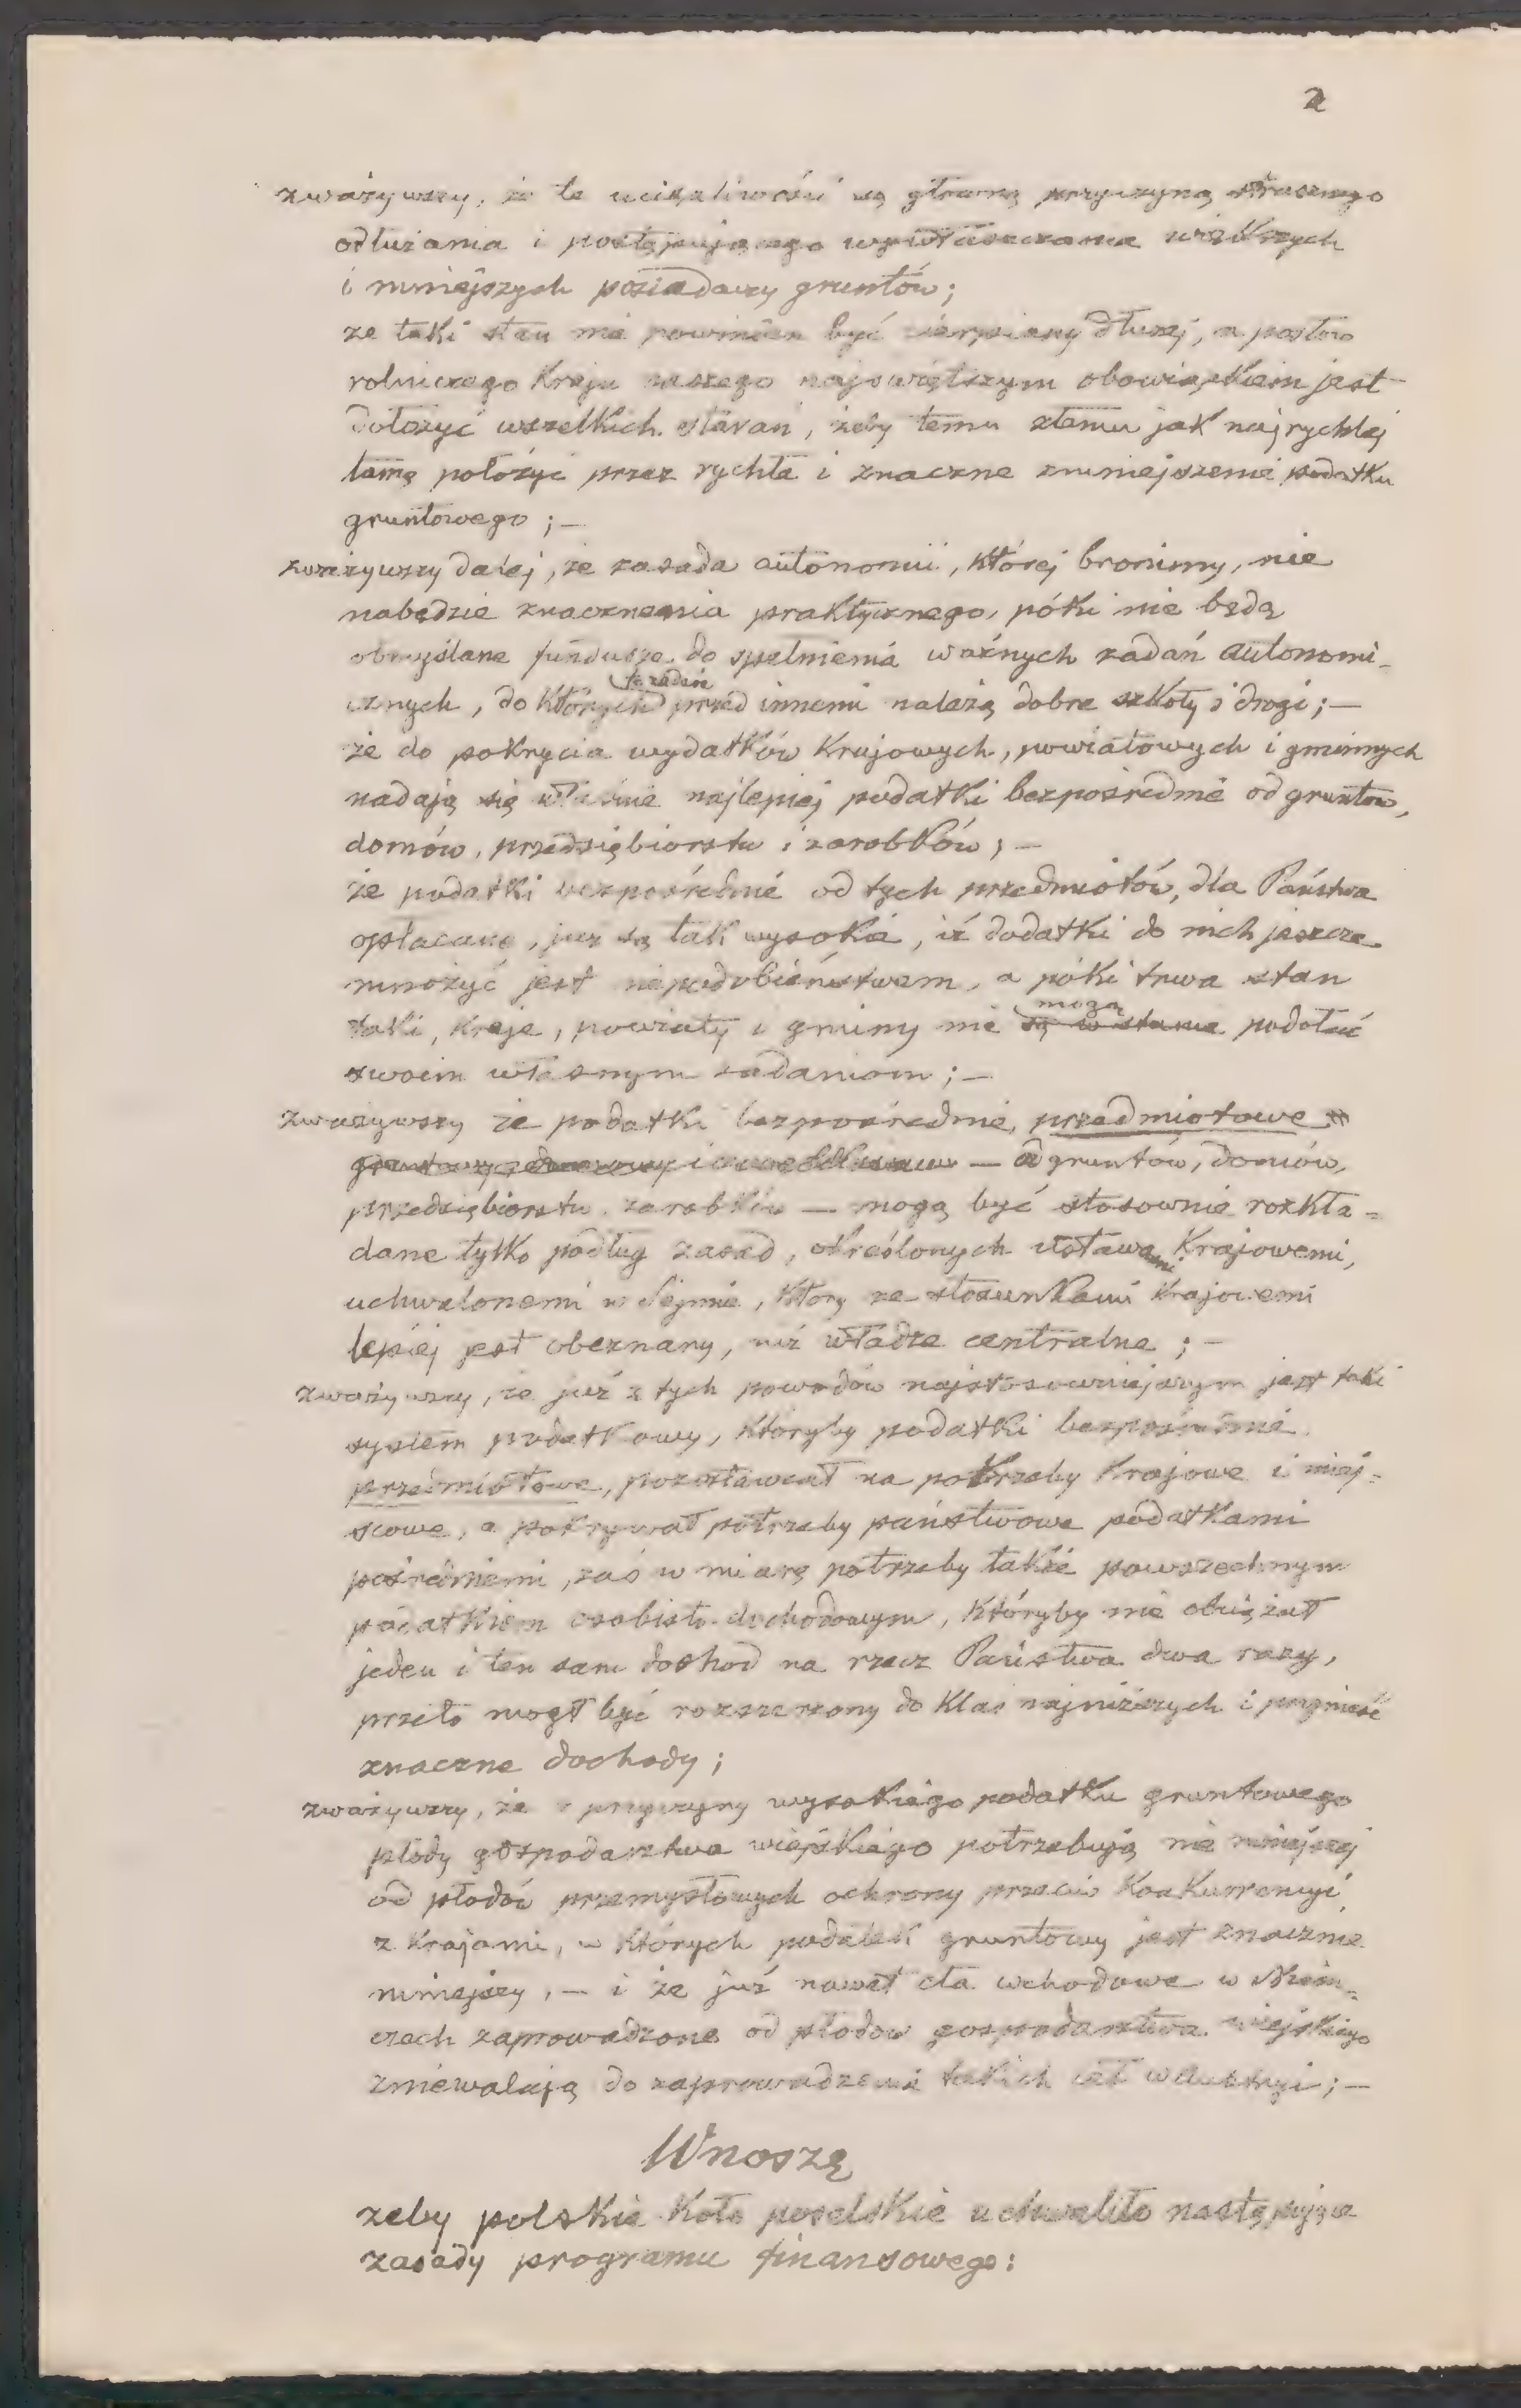 2
zważywszy, że te uciążliwości są główną przyczyną strasznego
odłużania i postępującego wywłaszczania większych
i mniejszych posiadaczy gruntów;
że taki stan nie powinien być cierpiany dłużej, a posłów
rolniczego Kraju naszego najświętszym obowiązkiem jest
dołożyć wszelkich starań, żeby temu złemu jak najrychlej
tamę położyć przez rychłe i znaczne zmniejszenie podatku
gruntowego; —
zważywszy dalej, że zasada autonomii, której bronimy, nie
nabędzie znaczenia praktycznego, póki nie będą
obmyślane fundusze do spełnienia ważnych zadań autonomi-
cznych, do których przed innemi należą dobre szkoły i drogi; —
że do pokrycia wydatków Krajowych, powiatowych i gminnych
nadają się właśnie najlepiej podatki bezpośrednie od gruntów,
domów, przedsiębiorstw i zarobków; —
że podatki bezpośrednie od tych przedmiotów, dla Państwa
opłacane, już są tak wysokie, iż dodatki do nich jeszcze
mnożyć jest niepodobieństwem, a póki trwa stan
mogą
taki, Kraje, powiaty i gminy nie są w stanie podołać
swoim własnym zadaniom; —
zważywszy że podatki bezpośrednie, przedmiotowe
— od gruntów, domów,
przedsiębiorstw, zarobków — mogą być stosownie rozkła-
dane tylko podług zasad, określonych ustawami Krajowemi,
uchwalonemi w Sejmie, który ze stosunkami Krajowemi
lepiej jest obeznany, niż władze centralne; —
zważywszy, że już z tych powodów najstosowniejszym jest taki
system podatkowy, któryby podatki bezpośrednie
przedmiotowe, pozostawiał na potrzeby Krajowe i miej-
scowe, a pokrywał potrzeby państwowe podatkami
pośredniemi, zaś w miarę potrzeby także powszechnym
podatkiem osobisto-dochodowym, któryby nie obciążał
jeden i ten sam dochód na rzecz Państwa dwa razy,
przeto mógł być rozszerzony do klas najniższych i przynieść
znaczne dochody;
zważywszy, że z przyczyny wysokiego podatku gruntowego
płody gospodarstwa wiejskiego potrzebują nie mniejszej
od płodów przemysłowych ochrony przeciw Konkurrencyi
z Krajami, w których podatek gruntowy jest znacznie
mniejszy, — i że już nawet cła wchodowe w Niem-
czech zaprowadzone od płodów gospodarstwa wiejskiego
zniewalają do zaprowadzenia takich ceł w Austryi; —
Wnoszę
żeby polskie Koło poselskie uchwaliło następujące
zasady programu finansowego: